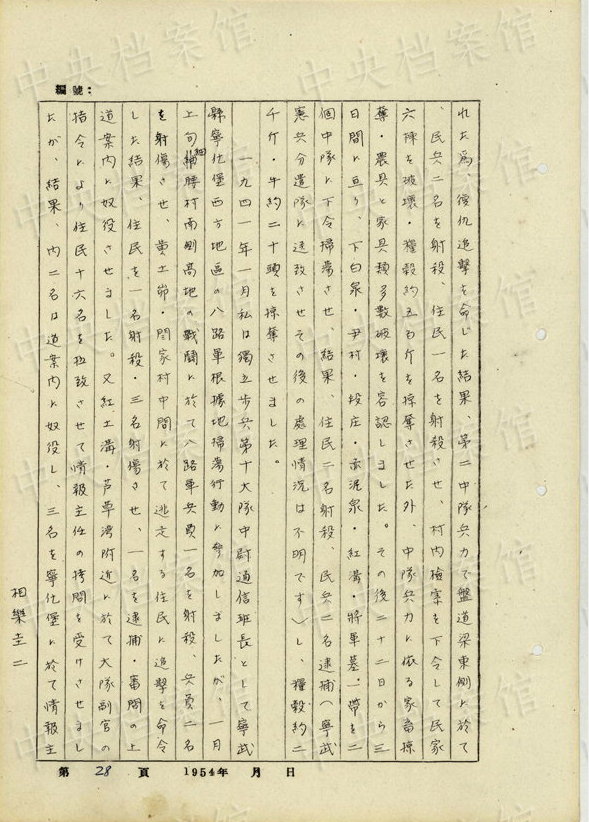 編號：
れた爲、復仇追撃を命じた結果、第二中隊兵力で盤道梁東側に於て
、民兵二名を射殺、住民一名を射殺させ、村内檢索を下令して民家
六棟を破壊・糧穀約五百斤を掠奪させた外、中隊兵力に依る家畜掠
奪・農具と家具類多数破壊を容認しました。その後二十二日から三
日間に亘り、下白泉・尹村・段庄・赤泥泉・紅溝・將軍墓一帶を二
個中隊に下令掃蕩させ、結果、住民二名射殺、民兵二名逮捕（寧武
憲兵分遣隊に送致させその後の處理情況は不明です）し、糧穀約二
千斤・牛約二十頭を掠奪させました。
一九四一年一月私は獨立歩兵第十大隊中尉通信班長として寧武
縣寧化堡西方地區の八路軍根據地掃蕩行動に參加しましたが、一月
上旬細腰村南側高地の戰闘に於て八路軍兵員一名を射殺、兵員二名
を射傷させ、黄土峁・閆家村中間に於て逃走する住民に追撃を命令
した結果、住民を一名射殺・三名射傷させ、一名を逮捕・審問の上
道案内に奴役させました。又紅土溝・芦草湾附近に於て大隊副官の
指令により住民十六名を拉致させて情報主任の拷問を受けさせまし
たが、結果、内二名は道案内に奴役し、三名を寧化堡に於て情報主
相樂圭二
第 28 頁 1954年 月 日
中央档案馆